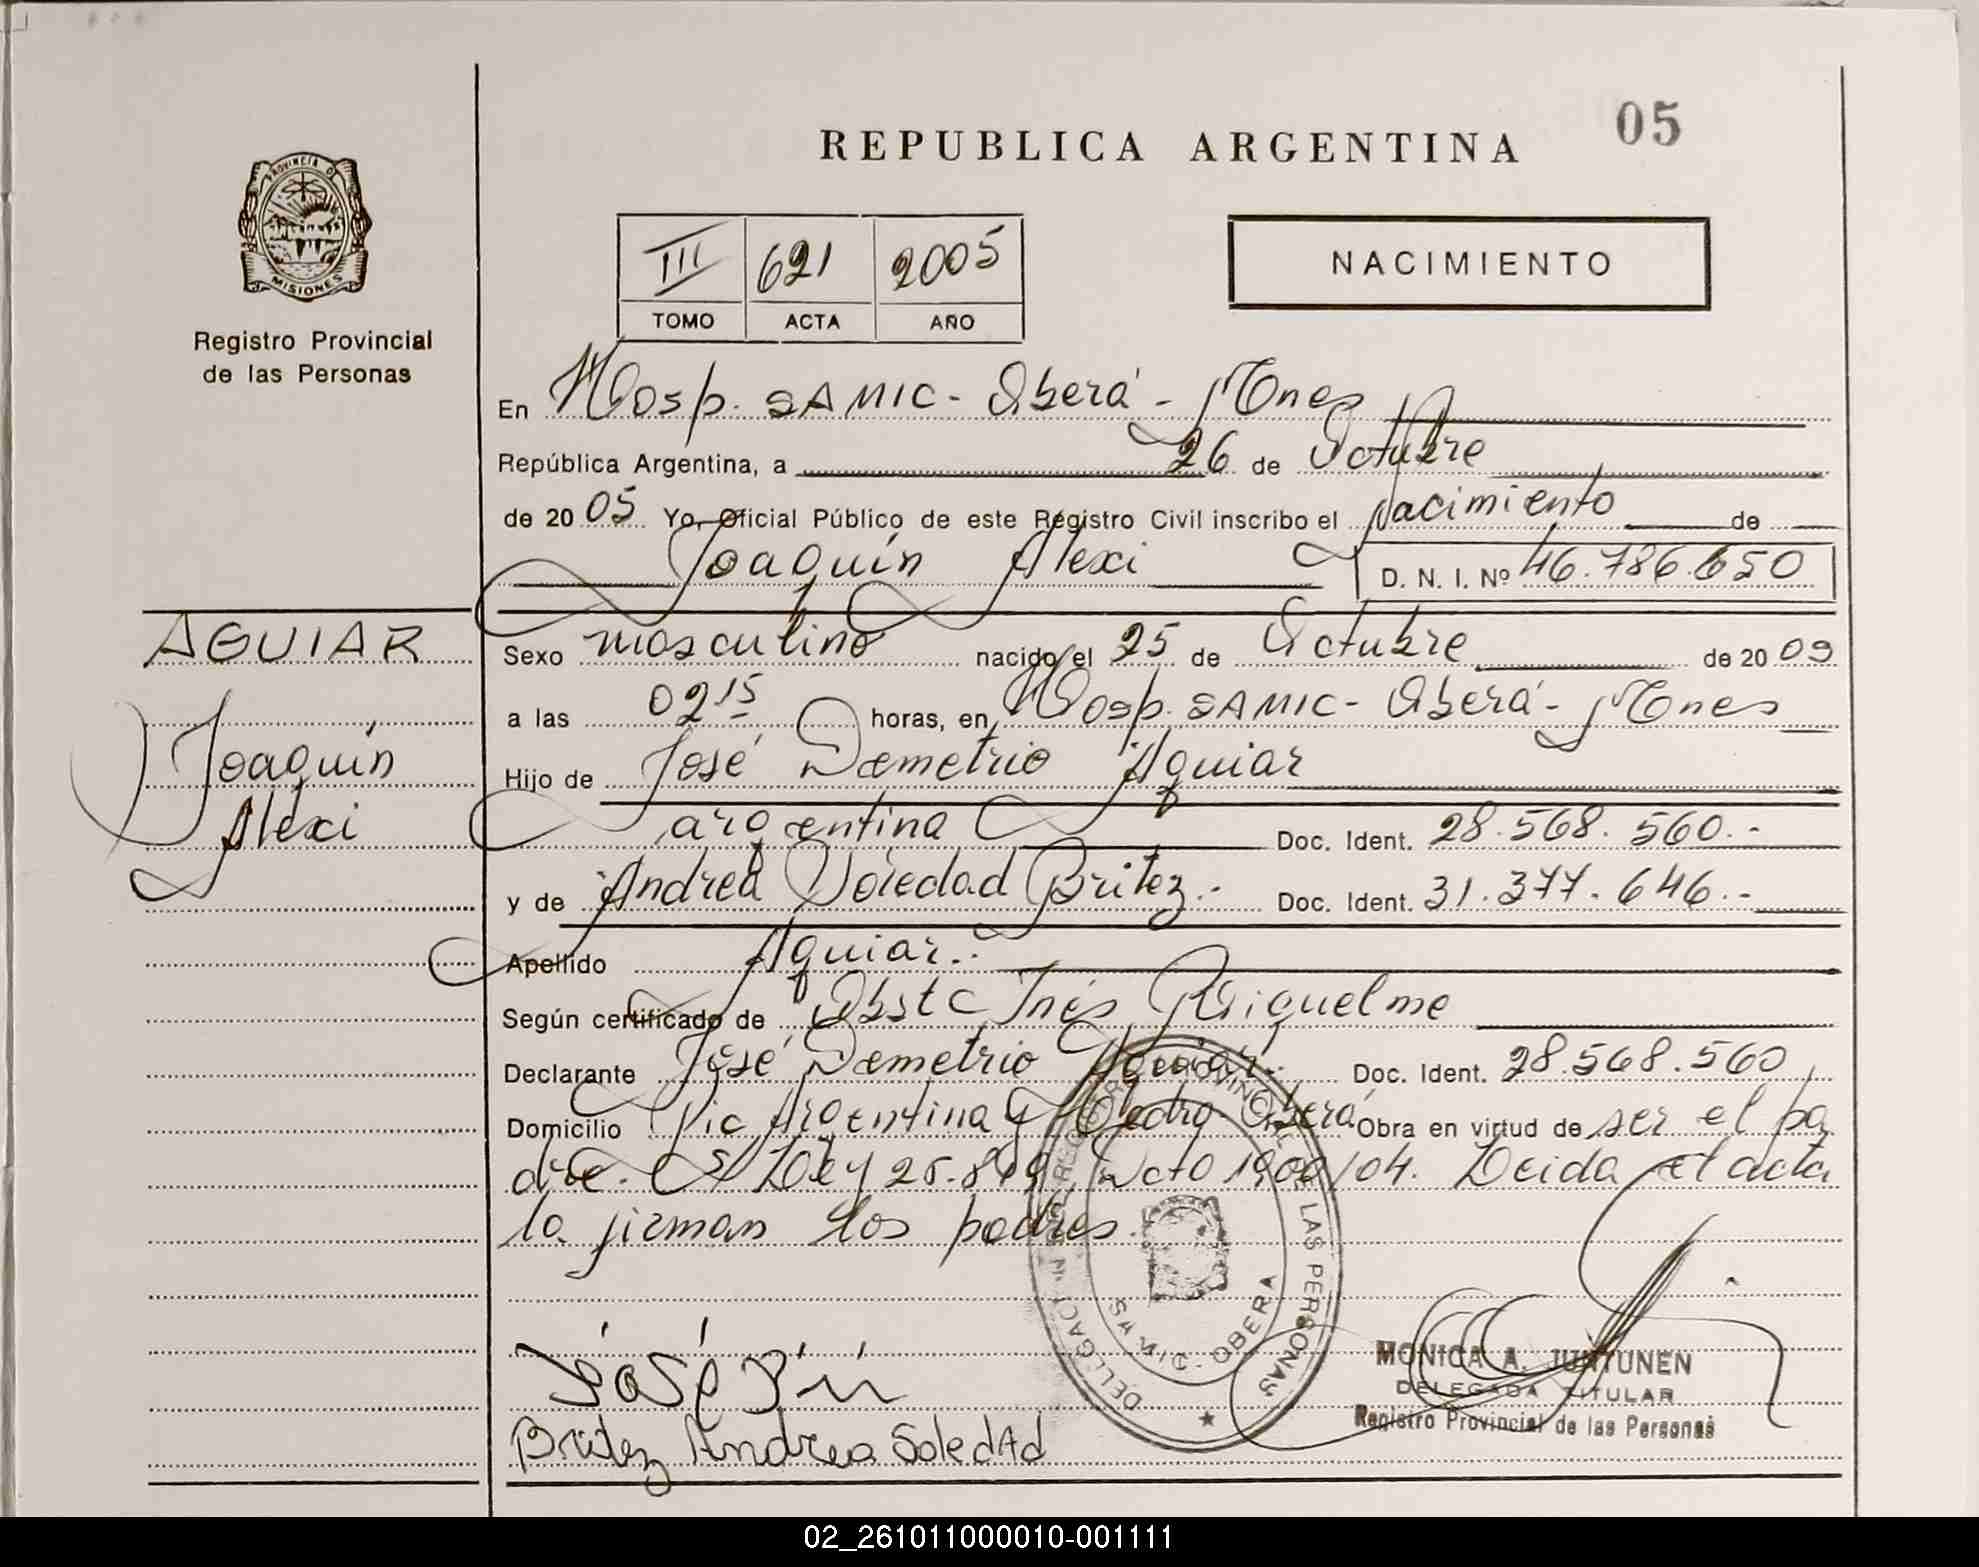 05
REPUBLICA ARGENTINA
PROVINCIA DE
MISIONES
Registro Provincial
de las Personas
III 621 2005
TOMO ACTA AÑO
NACIMIENTO
En Hosp. SAMIC - Oberá - Mnes
República Argentina, a 26 de Octubre
de 2005 Yo, Oficial Público de este Registro Civil inscribo el Nacimiento de
Joaquín Alexi D. N. I. Nº 46.786.650
AGUIAR
Joaquín
Alexi
Sexo masculino nacido el 25 de Octubre de 2005
a las 02 15 horas, en Hosp. SAMIC - Oberá - Mnes
Hijo de José Demetrio Aguiar
argentina Doc. Ident. 28.568.560.-
y de Andrea Soledad Britez.- Doc. Ident. 31.377.646.-
Apellido Aguiar.-
Según certificado de Obstc Inés Riquelme
Declarante José Demetrio Aguiar.- Doc. Ident. 28.568.560
Domicilio Pic Argentina Oberá Obra en virtud de ser el pa
dre. Ley 25.819 Dcto 1900/04. Leida el acta
la firman los padres.
DELEGACION REGISTRO PROVINCIAL DE LAS PERSONAS
OBERA
José
Britez Andrea Soledad
MONICA A. JUNTUNEN
DELEGADA TITULAR
Registro Provincial de las Personas
02_261011000010-001111